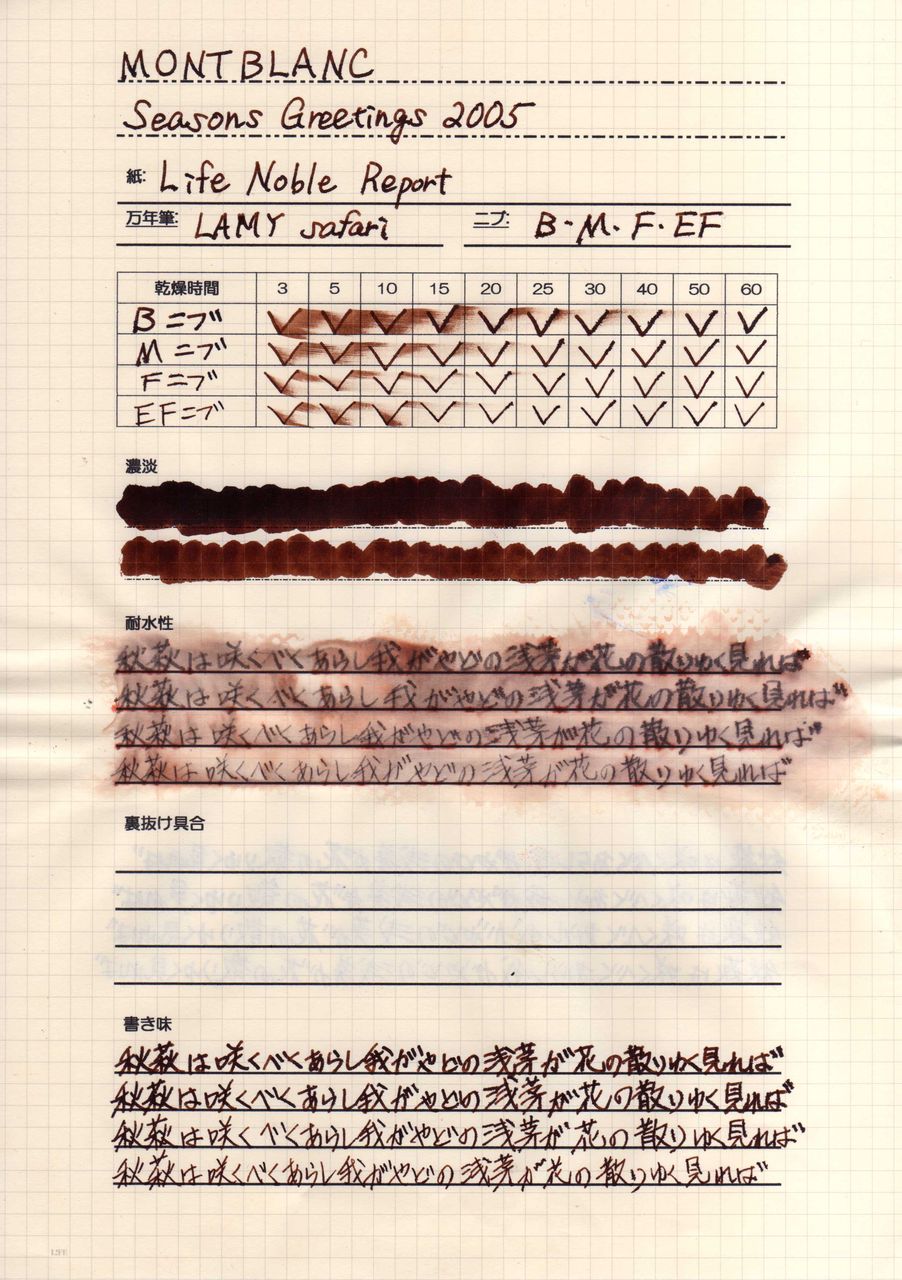 MONTBLANC
Seasons Greetings 2005
紙: Life Noble Report
万年筆: LAMY safari ニブ: B・M・F・EF
乾燥時間 3 5 10 15 20 25 30 40 50 60
Bニブ ✓ ✓ ✓ ✓ ✓ ✓ ✓ ✓ ✓ ✓
Mニブ ✓ ✓ ✓ ✓ ✓ ✓ ✓ ✓ ✓ ✓
Fニブ ✓ ✓ ✓ ✓ ✓ ✓ ✓ ✓ ✓ ✓
EFニブ ✓ ✓ ✓ ✓ ✓ ✓ ✓ ✓ ✓ ✓
濃淡
耐水性
秋萩は咲くべくあらし我がやどの浅茅が花の散りゆく見れば
秋萩は咲くべくあらし我がやどの浅茅が花の散りゆく見れば
秋萩は咲くべくあらし我がやどの浅茅が花の散りゆく見れば
秋萩は咲くべくあらし我がやどの浅茅が花の散りゆく見れば
裏抜け具合
書き味
秋萩は咲くべくあらし我がやどの浅茅が花の散りゆく見れば
秋萩は咲くべくあらし我がやどの浅茅が花の散りゆく見れば
秋萩は咲くべくあらし我がやどの浅茅が花の散りゆく見れば
秋萩は咲くべくあらし我がやどの浅茅が花の散りゆく見れば
LIFE